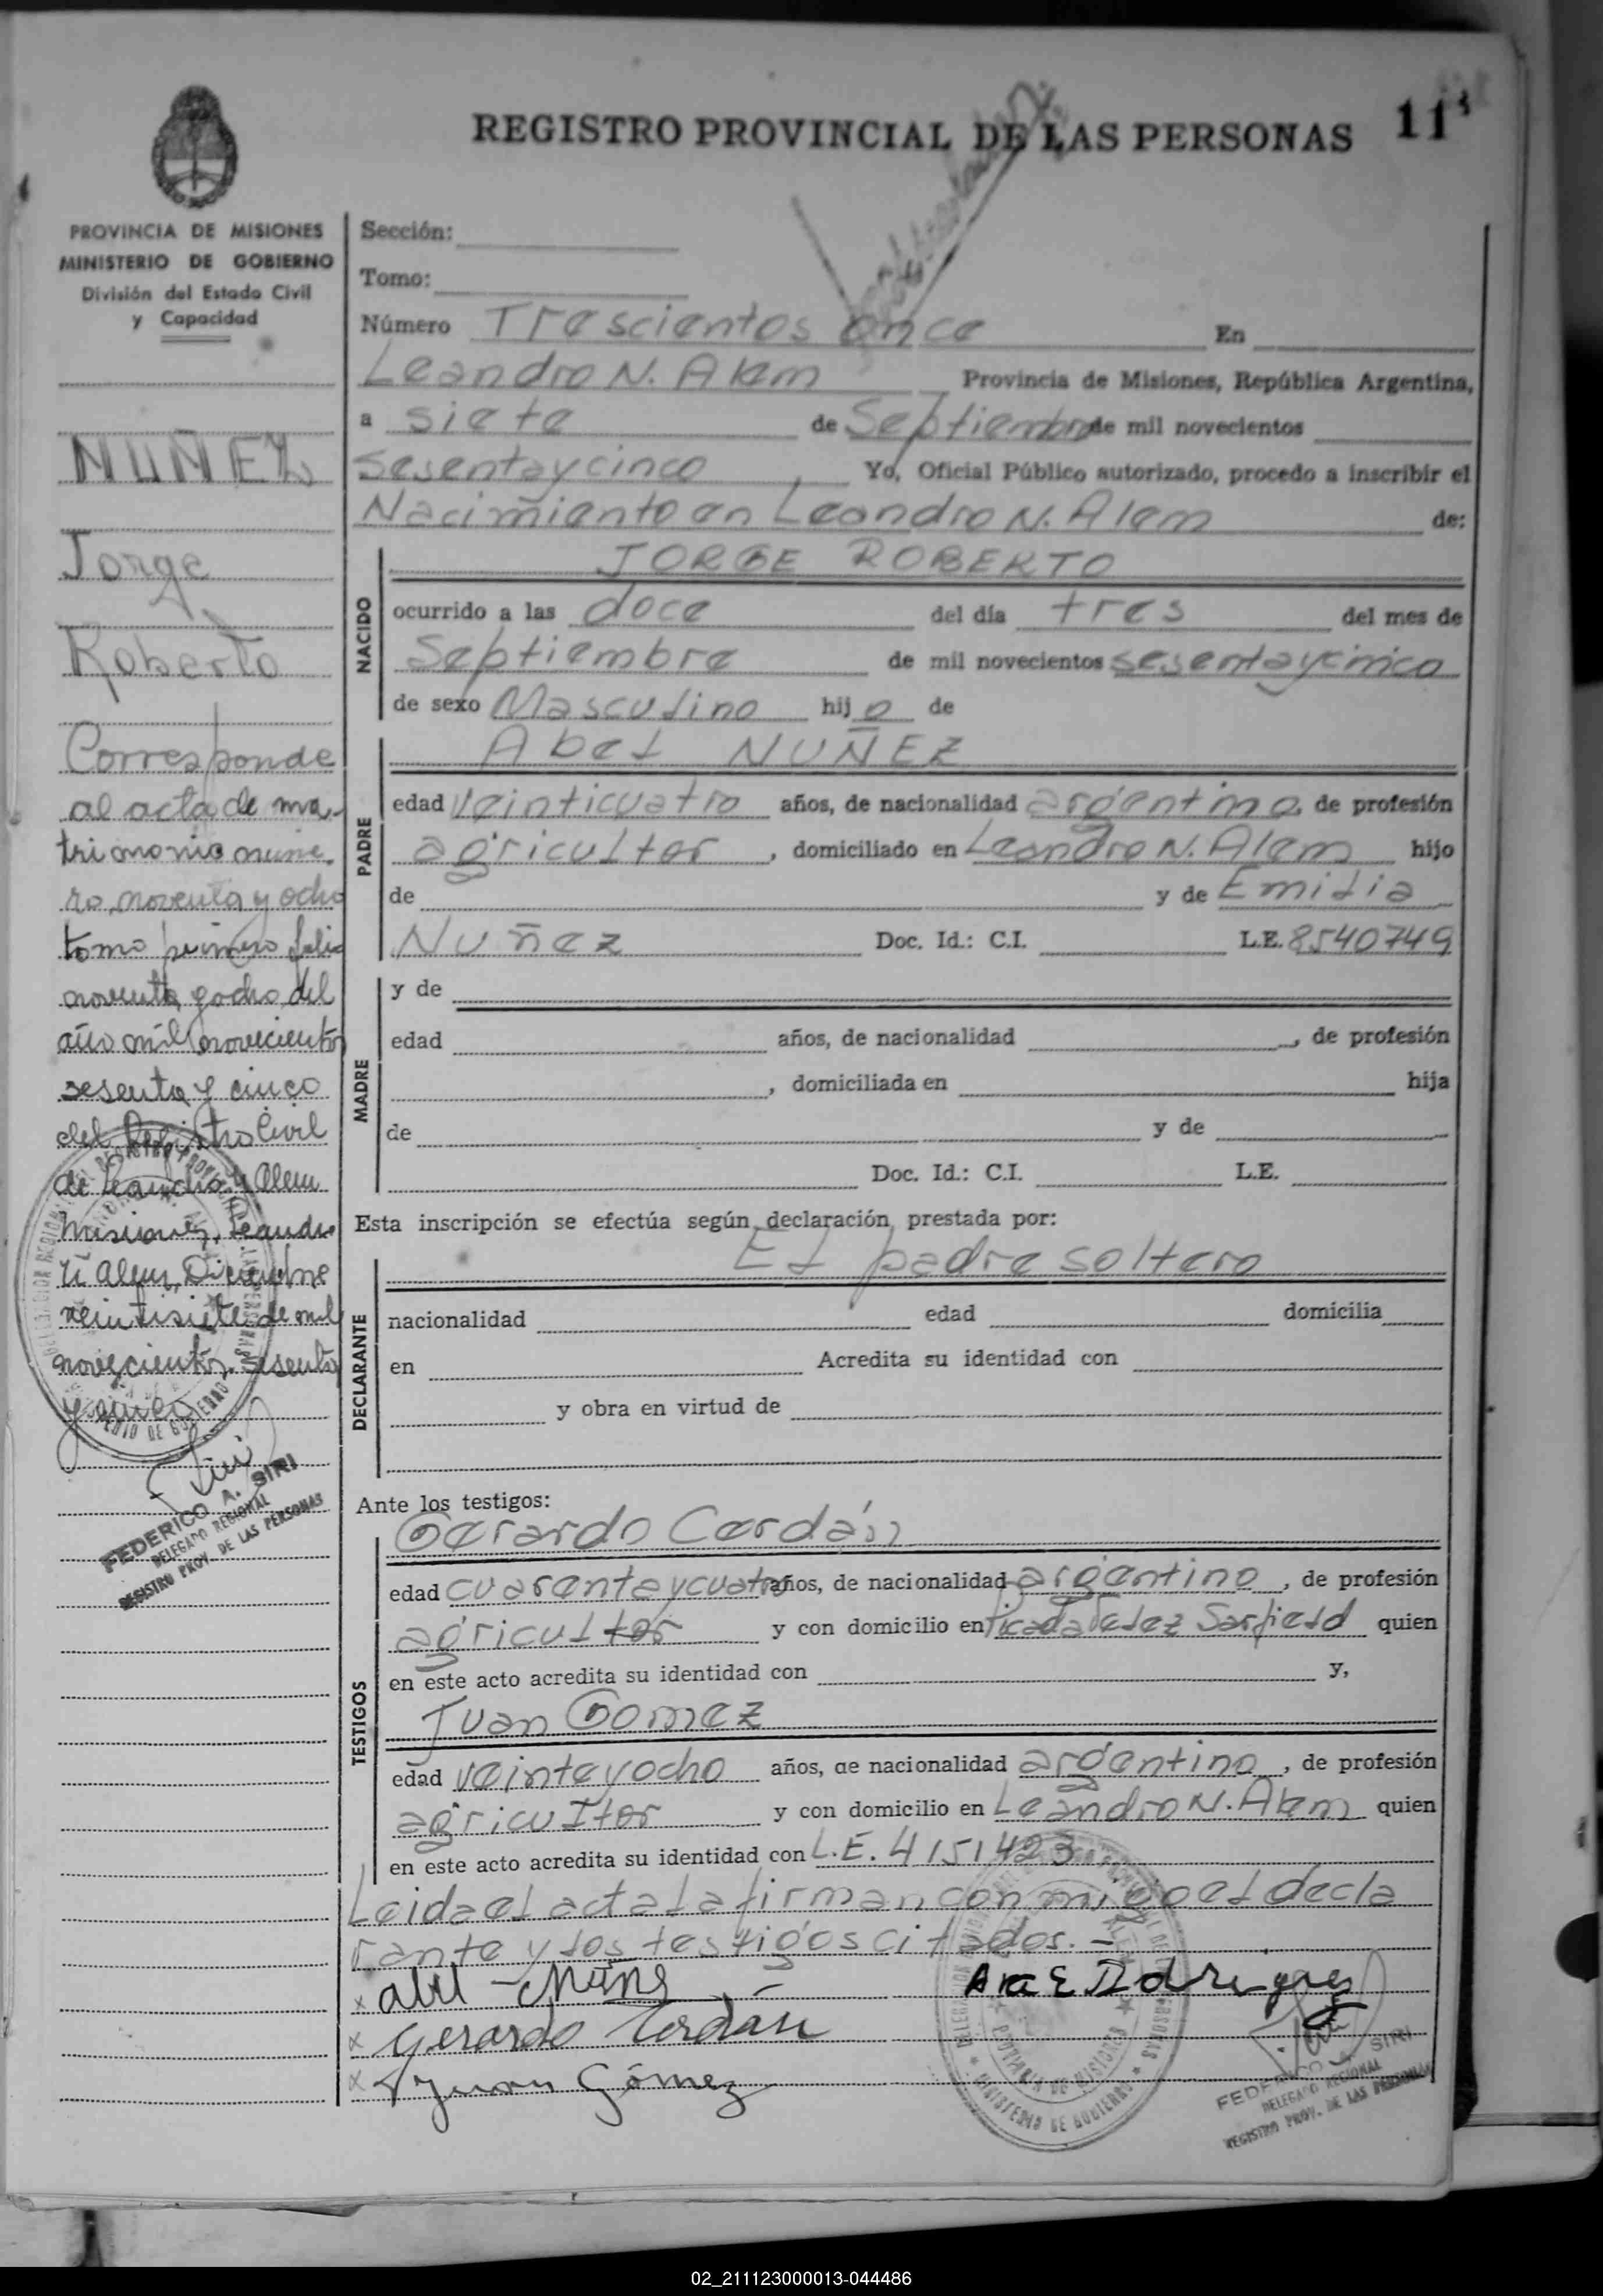 REGISTRO PROVINCIAL DE LAS PERSONAS
PROVINCIA DE MISIONES
MINISTERIO DE GOBIERNO
División del Estado Civil
y Capacidad
NUÑEZ
Jorge
Roberto
Corresponde
al acta de ma-
trimonio núme-
ro, noventa y ocho
tomo primero folio
noventa y ocho del
año mil novecientos
sesenta y cinco
del Registro Civil
de Leandro N Alem
Misiones, Leandro
N Alem, Diciembre
veintisiete de mil
novecientos sesenta
y cinco
FEDERICO A. SIRI
DELEGADO REGIONAL
REGISTRO PROV. DE LAS PERSONAS
Sección:
Tomo:
Número Trescientos once En
Leandro N. Alem Provincia de Misiones, República Argentina,
a siete de Septiembre de mil novecientos
sesentaycinco, Yo, Oficial Público autorizado, procedo a inscribir el
Nacimiento en Leandro N. Alem de:
NACIDO
JORGE ROBERTO
ocurrido a las doce del día tres del mes de
Septiembre de mil novecientos sesentaycinco
de sexo Masculino hijo de
PADRE
Abel NUÑEZ
edad veinticuatro años, de nacionalidad argentino, de profesión
agricultor, domiciliado en Leandro N. Alem hijo
de y de Emilia
Nuñez Doc. Id.: C.I. L.E. 8540749
MADRE
y de
edad años, de nacionalidad , de profesión
, domiciliada en hija
de y de
Doc. Id.: C.I. L.E.
Esta inscripción se efectúa según declaración prestada por:
DECLARANTE
El padre soltero
nacionalidad edad domicilia
en Acredita su identidad con
y obra en virtud de
Ante los testigos:
TESTIGOS
Gerardo Cerdán
edad cuarentaycuatro años, de nacionalidad argentino, de profesión
agricultor y con domicilio en Picada Velez Sarfield quien
en este acto acredita su identidad con y,
Juan Gomez
edad veinteyocho años, de nacionalidad argentino, de profesión
agricultor y con domicilio en Leandro N. Alem quien
en este acto acredita su identidad con L.E. 4151423
Leida el acta la firman conmigo el decla
rante y los testigos citados.-
x Abel
x Gerardo Cerdán
x Juan Gómez
FEDERICO A. SIRI
DELEGADO REGIONAL
REGISTRO PROV. DE LAS PERSONAS
02_211123000013-044486